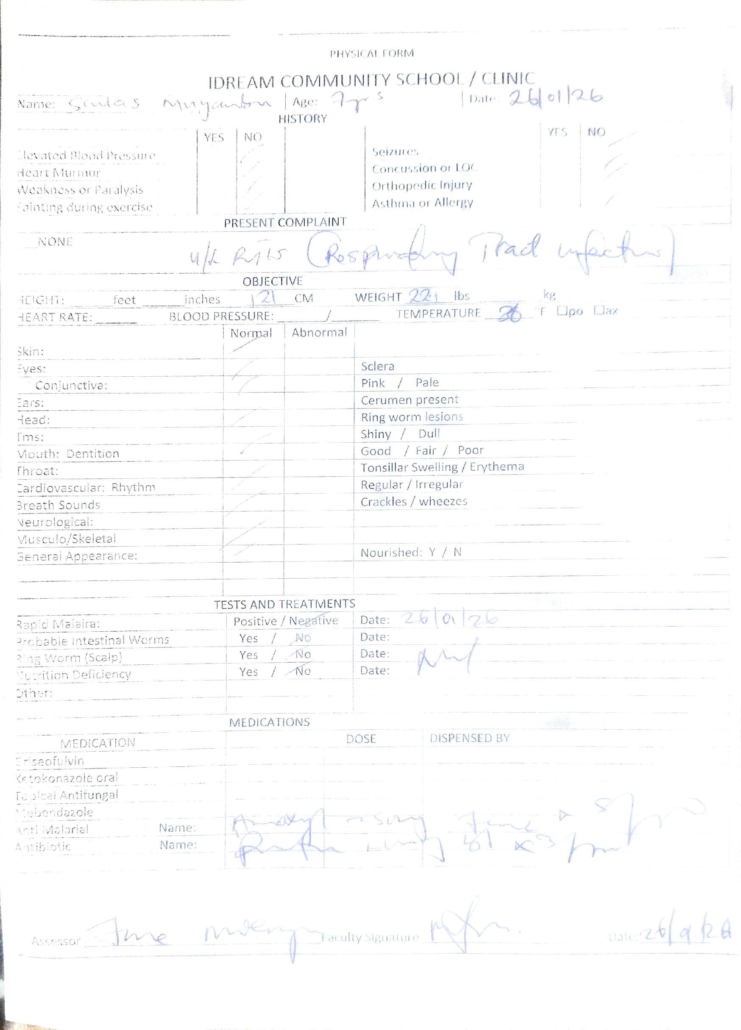 PHYSICAL FORM
IDREAM COMMUNITY SCHOOL / CLINIC
Name: Age: 7yrs Date 26/01/26
HISTORY
YES NO YES NO
Elevated Blood Pressure Seizures
Heart Murmur Concussion or LOC
Weakness or Paralysis Orthopedic Injury
Fainting during exercise Asthma or Allergy
PRESENT COMPLAINT
NONE RTIs (Respiratory Tract infection)
OBJECTIVE
HEIGHT: feet inches 121 CM WEIGHT 22 lbs kg
HEART RATE: BLOOD PRESSURE: / TEMPERATURE 36 F po ax
Normal Abnormal
Skin:
Eyes: Sclera
Conjunctive: Pink / Pale
Ears: Cerumen present
Head: Ring worm lesions
Tms: Shiny / Dull
Mouth: Dentition Good / Fair / Poor
Throat: Tonsillar Swelling / Erythema
Cardiovascular: Rhythm Regular / Irregular
Breath Sounds Crackles / wheezes
Neurological:
Musculo/Skeletal
General Appearance: Nourished: Y / N
TESTS AND TREATMENTS
Rapid Malaira: Positive / Negative Date: 26/01/26
Probable Intestinal Worms Yes / No Date:
Ring Worm (Scalp) Yes / No Date:
Nutrition Deficiency Yes / No Date:
Other:
MEDICATIONS
MEDICATION DOSE DISPENSED BY
Griseofulvin
Ketokonazole oral
Topical Antifungal
Mebendazole
Anti Malarial Name:
Antibiotic Name:
Assessor Faculty Signature Date: